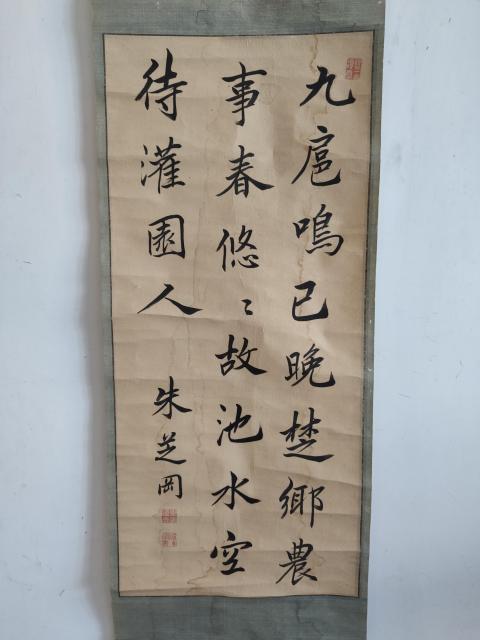 九扈鳴已晚楚鄉農
事春悠〻故池水空
待灌園人
朱芝岡